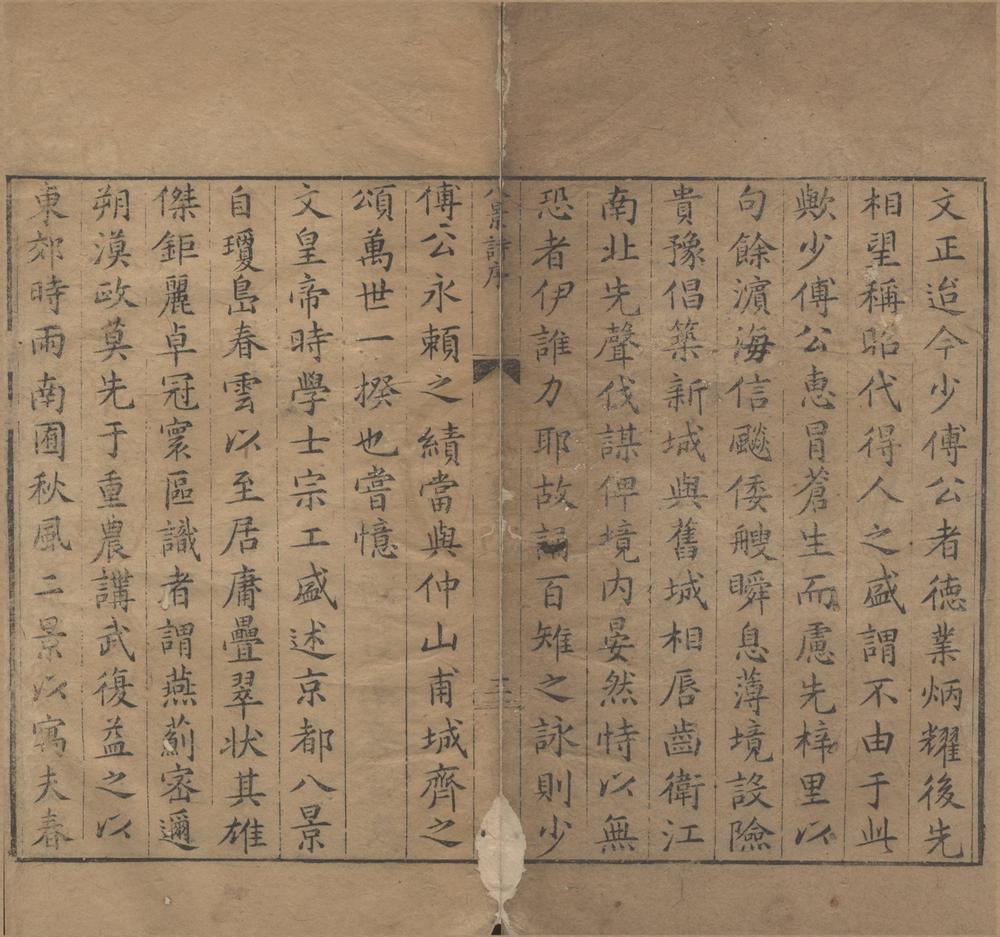 文正迨今少傅公者德業炳耀後先
相望稱昭代得人之盛謂不由于此
歟少傅公惠冒蒼生而慮先梓里以
句餘濵海信颷倭艘瞬息薄境設險
貴豫倡築新城與舊城相唇齒衛江
南北先聲伐謀俾境内晏然恃以無
恐者伊誰力耶故誦百雉之詠則少
八景詩序 三
傅公永頼之績當與仲山甫城齊之
頌萬世一揆也嘗憶
文皇帝時學士宗工盛述京都八景
自瓊島春雲以至居庸疊翠状其雄
傑鉅麗卓冠寰區識者謂燕薊密邇
朔漠政莫先于重農講武復益之以
東郊時雨南囿秋風二景以寓夫春